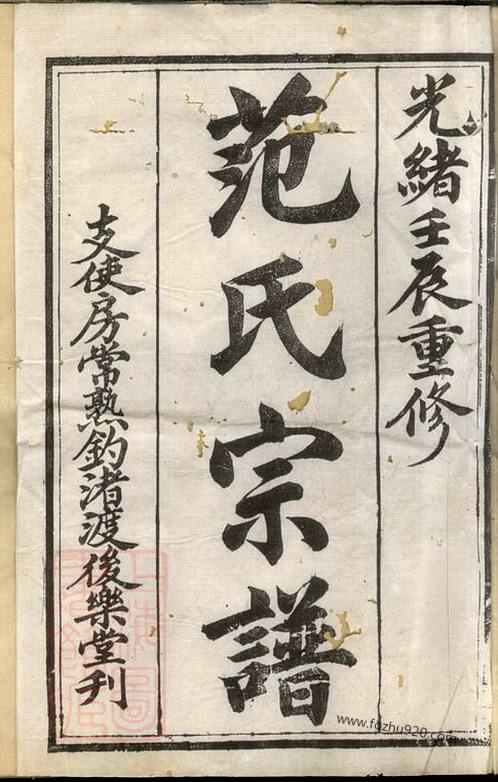 光緒壬辰重修
范氏宗譜
支使房常熟釣渚渡後樂堂刋
www.fqzhu920.com